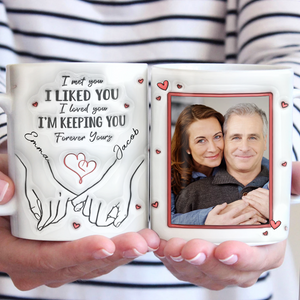 I met you
I LIKED YOU
I loved you
I'M KEEPING YOU
Forever Yours
Emma
Jacob